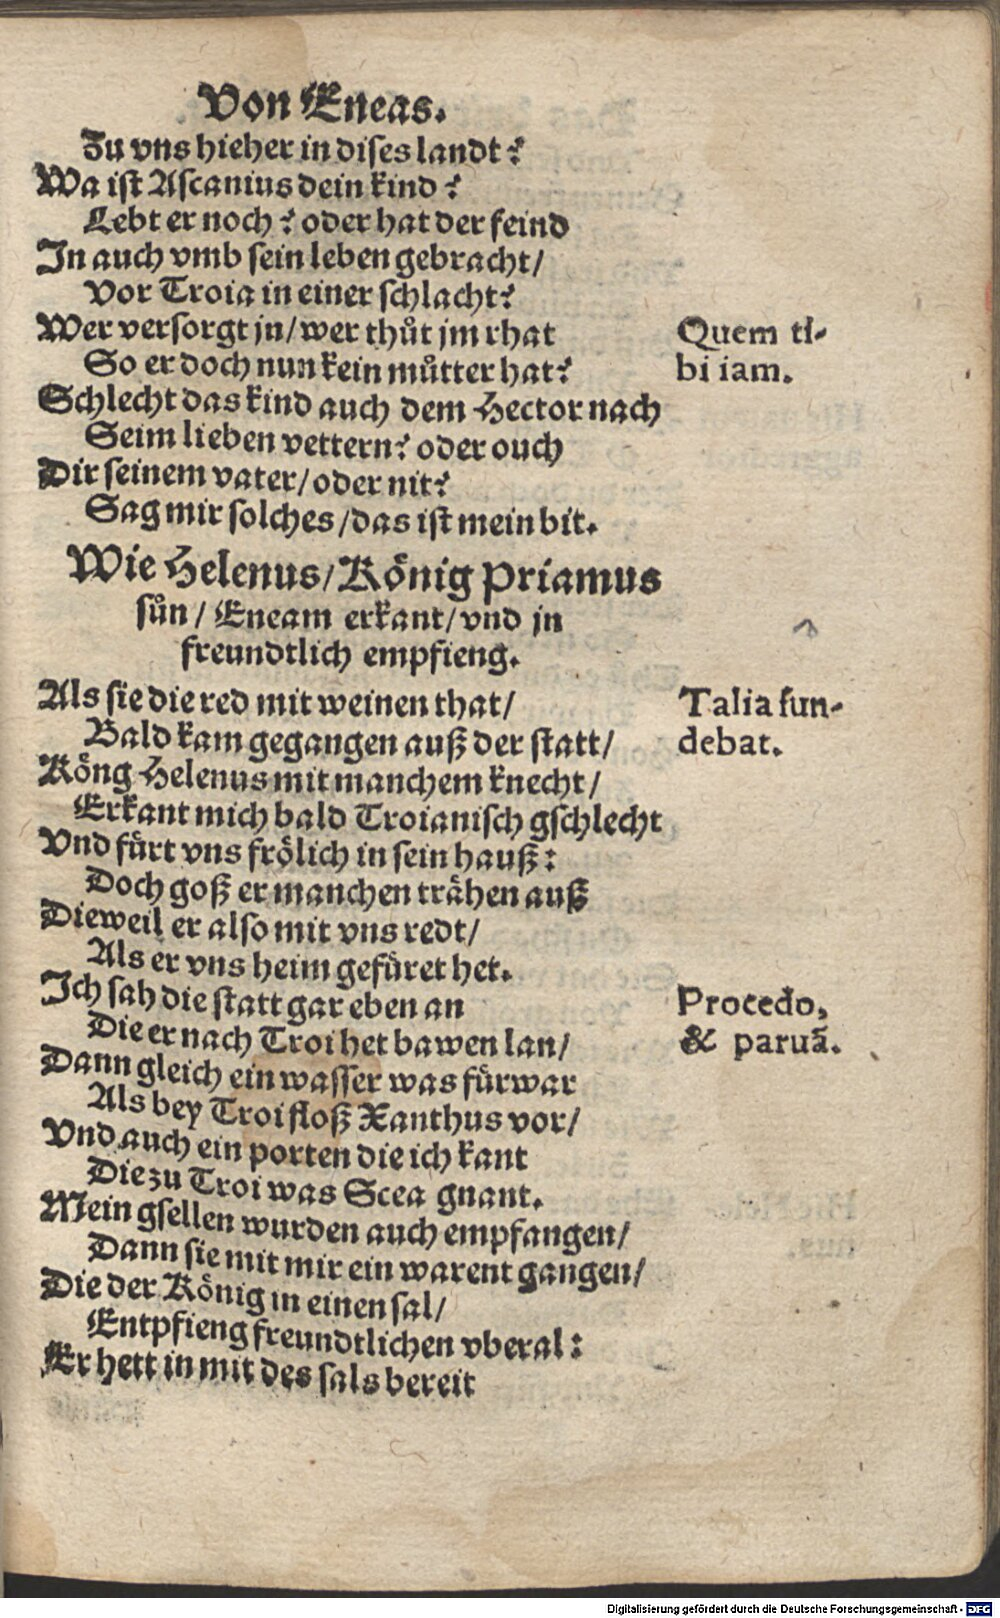 Von Eneas.
Zu vns hieher in dises landt?
Wa ist Ascanius dein kind?
Lebt er noch? oder hat der feind
In auch vmb sein leben gebracht/
Vor Troia in einer schlacht?
Wer versorgt jn/ wer thůt jm rhat
Quem ti-
So er doch nun kein můtter hat?
bi iam.
Schlecht das kind auch dem Hector nach
Seim lieben vettern? oder ouch
Dir seinem vater/ oder nit?
Sag mir solches/ das ist mein bit.
Wie Helenus/ König Priamus
sůn/ Eneam erkant/ vnd jn
freundtlich empfieng.
Als sie die red mit weinen that/
Talia fun-
Bald kam gegangen auß der statt/
debat.
Köng Helenus mit manchem knecht/
Erkant mich bald Troianisch gschlecht
Vnd fürt vns frölich in sein hauß:
Doch goß er manchen trähen auß
Dieweil er also mit vns redt/
Als er vns heim gefüret het.
Ich sah die statt gar eben an
Procedo,
Die er nach Troi het bawen lan/
& paruã.
Dann gleich ein wasser was fürwar
Als bey Troi floß Xanthus vor/
Vnd auch ein porten die ich kant
Die zu Troi was Scea gnant.
Mein gsellen wurden auch empfangen/
Dann sie mit mir ein warent gangen/
Die der König in einen sal/
Entpfieng freundtlichen vberal:
Er hett in mit des sals bereit
Digitalisierung gefördert durch die Deutsche Forschungsgemeinschaft - DFG